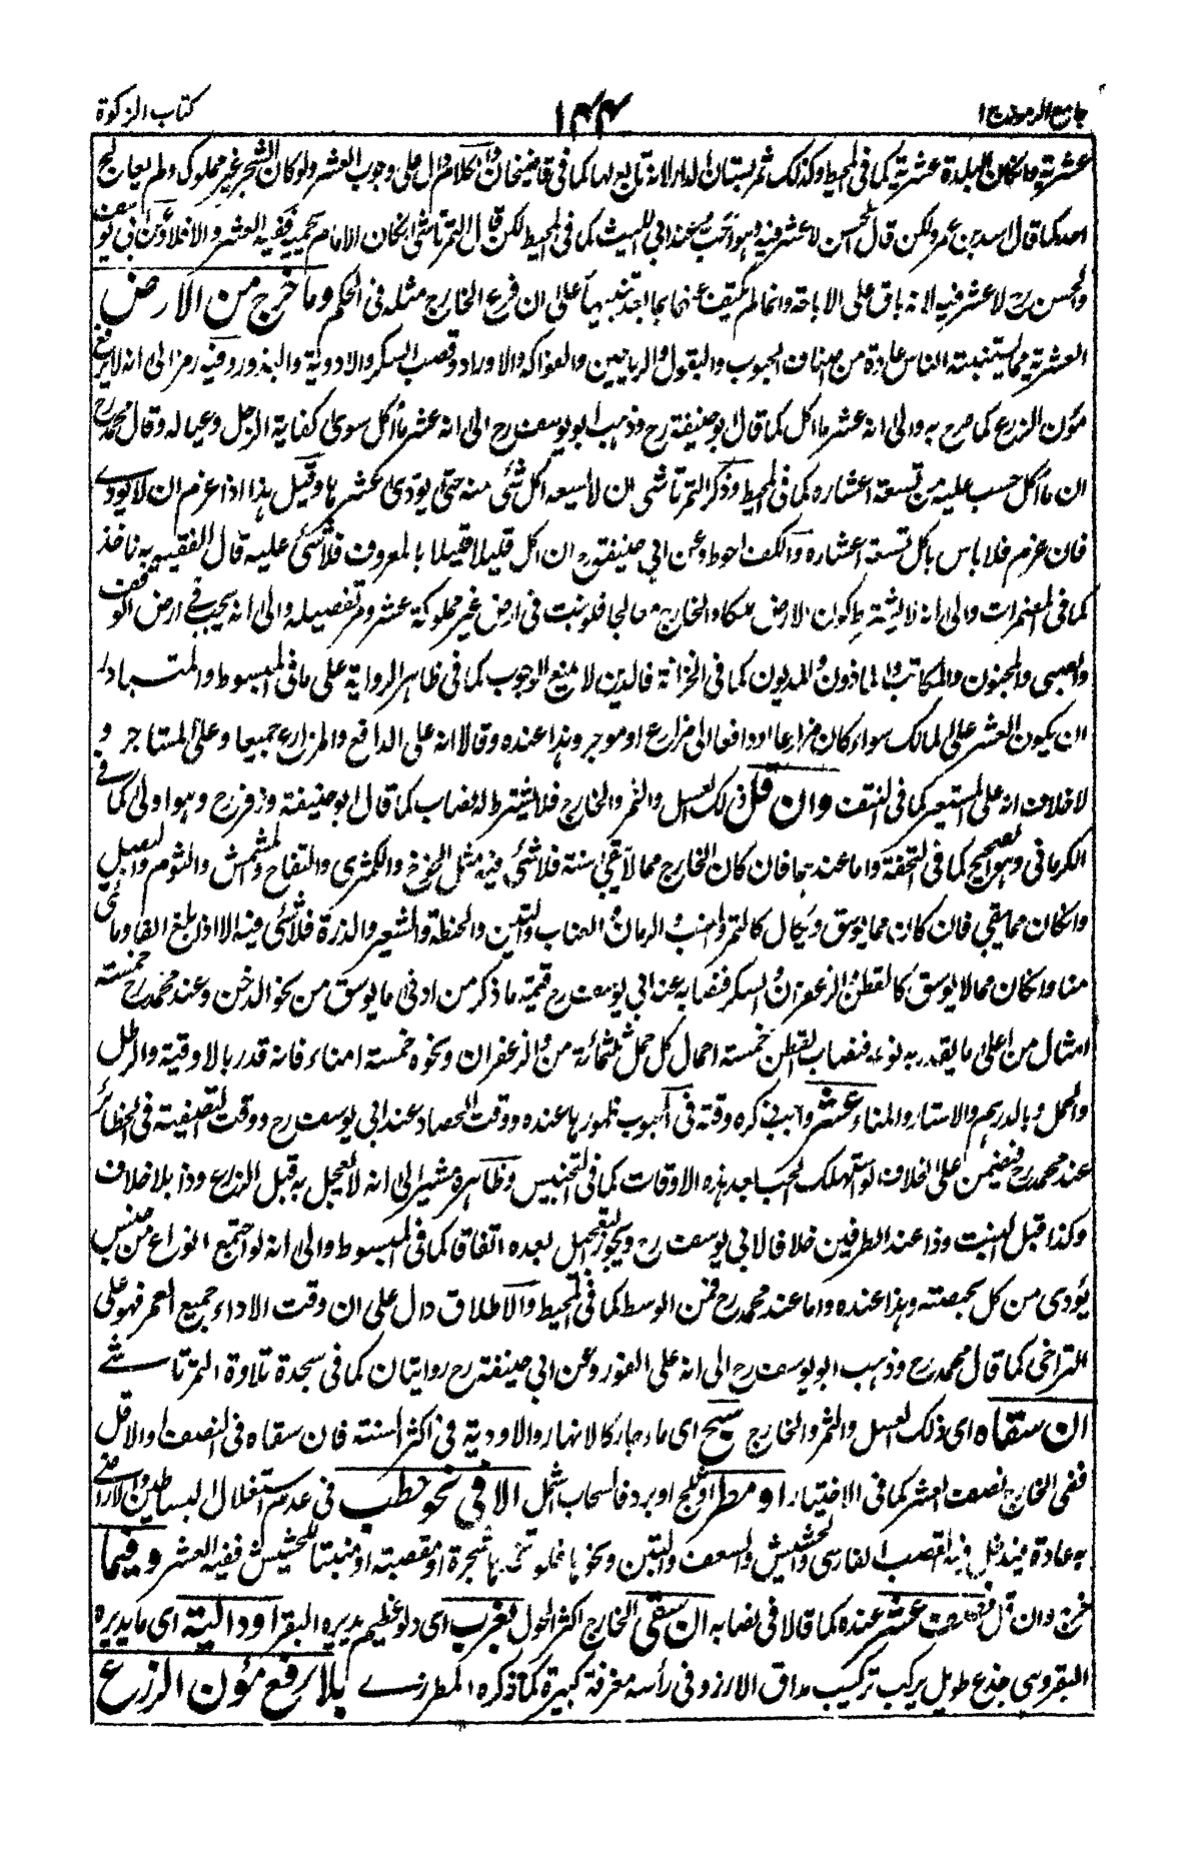 جامع الرموز ج ١
١٤٤
كتاب الزكوة
عشرية وان كان البلدة عشرية كما فى المحيط وكذلك ثمر بستان الدار لانه تابع لها كما فى قاضيخان والكلام دال على وجوب العشر ولو كان الشجر غير مملوك ولم يعالج
احد كما قال اسد بن عمر ولكن قال الحسن لا عشر فيه وهو احب عند ابى الليث كما فى المحيط لكن قال التمرتاشى ان كان الامام يحميه ففيه العشر والا فلا وعن ابى يوسف
والحسن رح لا عشر فيه لانه باق على الاباحة وانما لم يكتف عنهما بما بعد تنبيها على ان فرع الخارج مثله فى الحكم وما خرج من الارض
العشرية مما يستنبته الناس عادة من اصناف الحبوب والبقول والرياحين والفواكه والاوراد وقصب السكر والادوية والبذور وفيه رمز الى انه لا يرفع
مؤن الزرع كما صرح به والى انه عشر ما اكل كما قال ابو حنيفة رح وذهب ابو يوسف رح الى انه عشر ما اكل سوى كفاية الرجل وعياله وقال محمد رح
ان ما اكل حسب عليه من تسعة اعشاره كما فى المحيط وذكر التمرتاشى ان لا يسعه اكل شئ منه حتى يؤدى عشرها وقيل هذا اذا عزم ان لا يؤدى
فان عزم فلا باس باكل تسعة اعشاره والكف احوط وعن ابى حنيفة رح ان اكل قليلا قليلا بالمعروف فلا شئ عليه قال الفقيه به ناخذ
كما فى المضمرات والى انه لا يشترط كون الارض ملكا والخارج معالجا فلو نبت فى ارض غير مملوكة عشر ومر تفصيله والى انه يجب فى ارض الوقف
والصبى والمجنون والمكاتب والماذون والمديون كما فى الخزانة فالدين لا يمنع الوجوب كما فى ظاهر الرواية على ما فى المبسوط والمتبادر
ان يكون العشر على المالك سواء كان مزارعا او دافعا الى مزارع او موجر وهذا عنده وقالا انه على الدافع والمزارع جميعا وعلى المستاجر و
لا خلاف انه على المستعير كما فى النتف وان قل ذلك العسل والثمر والخارج فلا يشترط له نصاب كما قال ابو حنيفة وزفر رح وهو اولى كما فى
الكرمانى وهو الصحيح كما فى التحفة واما عندهما فان كان الخارج مما لا يبقى سنة فلا شئ فيه مثل الخوخ والكمثرى والتفاح والمشمش والثوم والبصل
وان كان مما يبقى فان كان مما يوسق ويكال كالتمر والعنب والرمان والعناب والتين والحنطة والشعير والذرة فلا شئ فيه الا اذا بلغ الفا ومائتى
منا وان كان مما لا يوسق كالقطن والزعفران والسكر فنصابه عند ابى يوسف رح قيمة ما ذكر من ادنى ما يوسق من نحو الدخن وعند محمد رح خمسة
امثال من اعلى ما يقدر به نوعه فنصاب القطن خمسة احمال كل حمل ثلثمائة من والزعفران ونحوه خمسة امناء فانه قدر بالاوقية والرطل
والحمل وبالدرهم والاستار والمناء عشر واجب ذكره وقته فى الحبوب ظهورها عنده ووقت الحصاد عند ابى يوسف رح ووقت التصفية فى الحظائر
عند محمد رح فيضمن على الخلاف لو استهلك الحب بعد هذه الاوقات كما فى التجنيس وظاهره مشير الى انه لا يعجل به قبل الزرع وذا بلا خلاف
وكذا قبل النبت وذا عند الطرفين خلافا لابى يوسف رح ويجوز التعجيل بعده اتفاقا كما فى المبسوط والى انه لو اجتمع انواع من جنس
يؤدى من كل بحصته وهذا عنده واما عند محمد رح فمن الوسط كما فى المحيط والاطلاق دال على ان وقت الاداء جميع العمر فهو على
التراخى كما قال محمد رح وذهب ابو يوسف رح الى انه على الفور وعن ابى حنيفة رح روايتان كما فى سجدة تلاوة التمرتاشى
ان سقاه اى ذلك العسل والثمر والخارج سيح اى ماء جار كالانهار والاودية فى اكثر السنة فان سقاه فى النصف او الاقل
ففى الخارج نصف العشر كما فى الاختيار او مطر او ثلج او برد فالسحاب اشمل الا فى نحو حطب فى عدم استغلال البساطين والاراضى
به عادة فيدخل فيه القصب الفارسى والحشيش والسعف والتبن ونحوها فلو اتخذها شجرة او مقصبة او منبتا للحشيش ففيه العشر وفيما
خرج وان قل نصف عشر عنده كما قالا فى نصابه ان سقى الخارج اكثر الحول بغرب اى دلو عظيم يديره البقر او دالية اى ما يديره
البقر وهى جذع طويل يركب تركيب مداق الارز وفى رأسه مغرفة كبيرة كما ذكره المطرزى بلا رفع مؤن الزرع